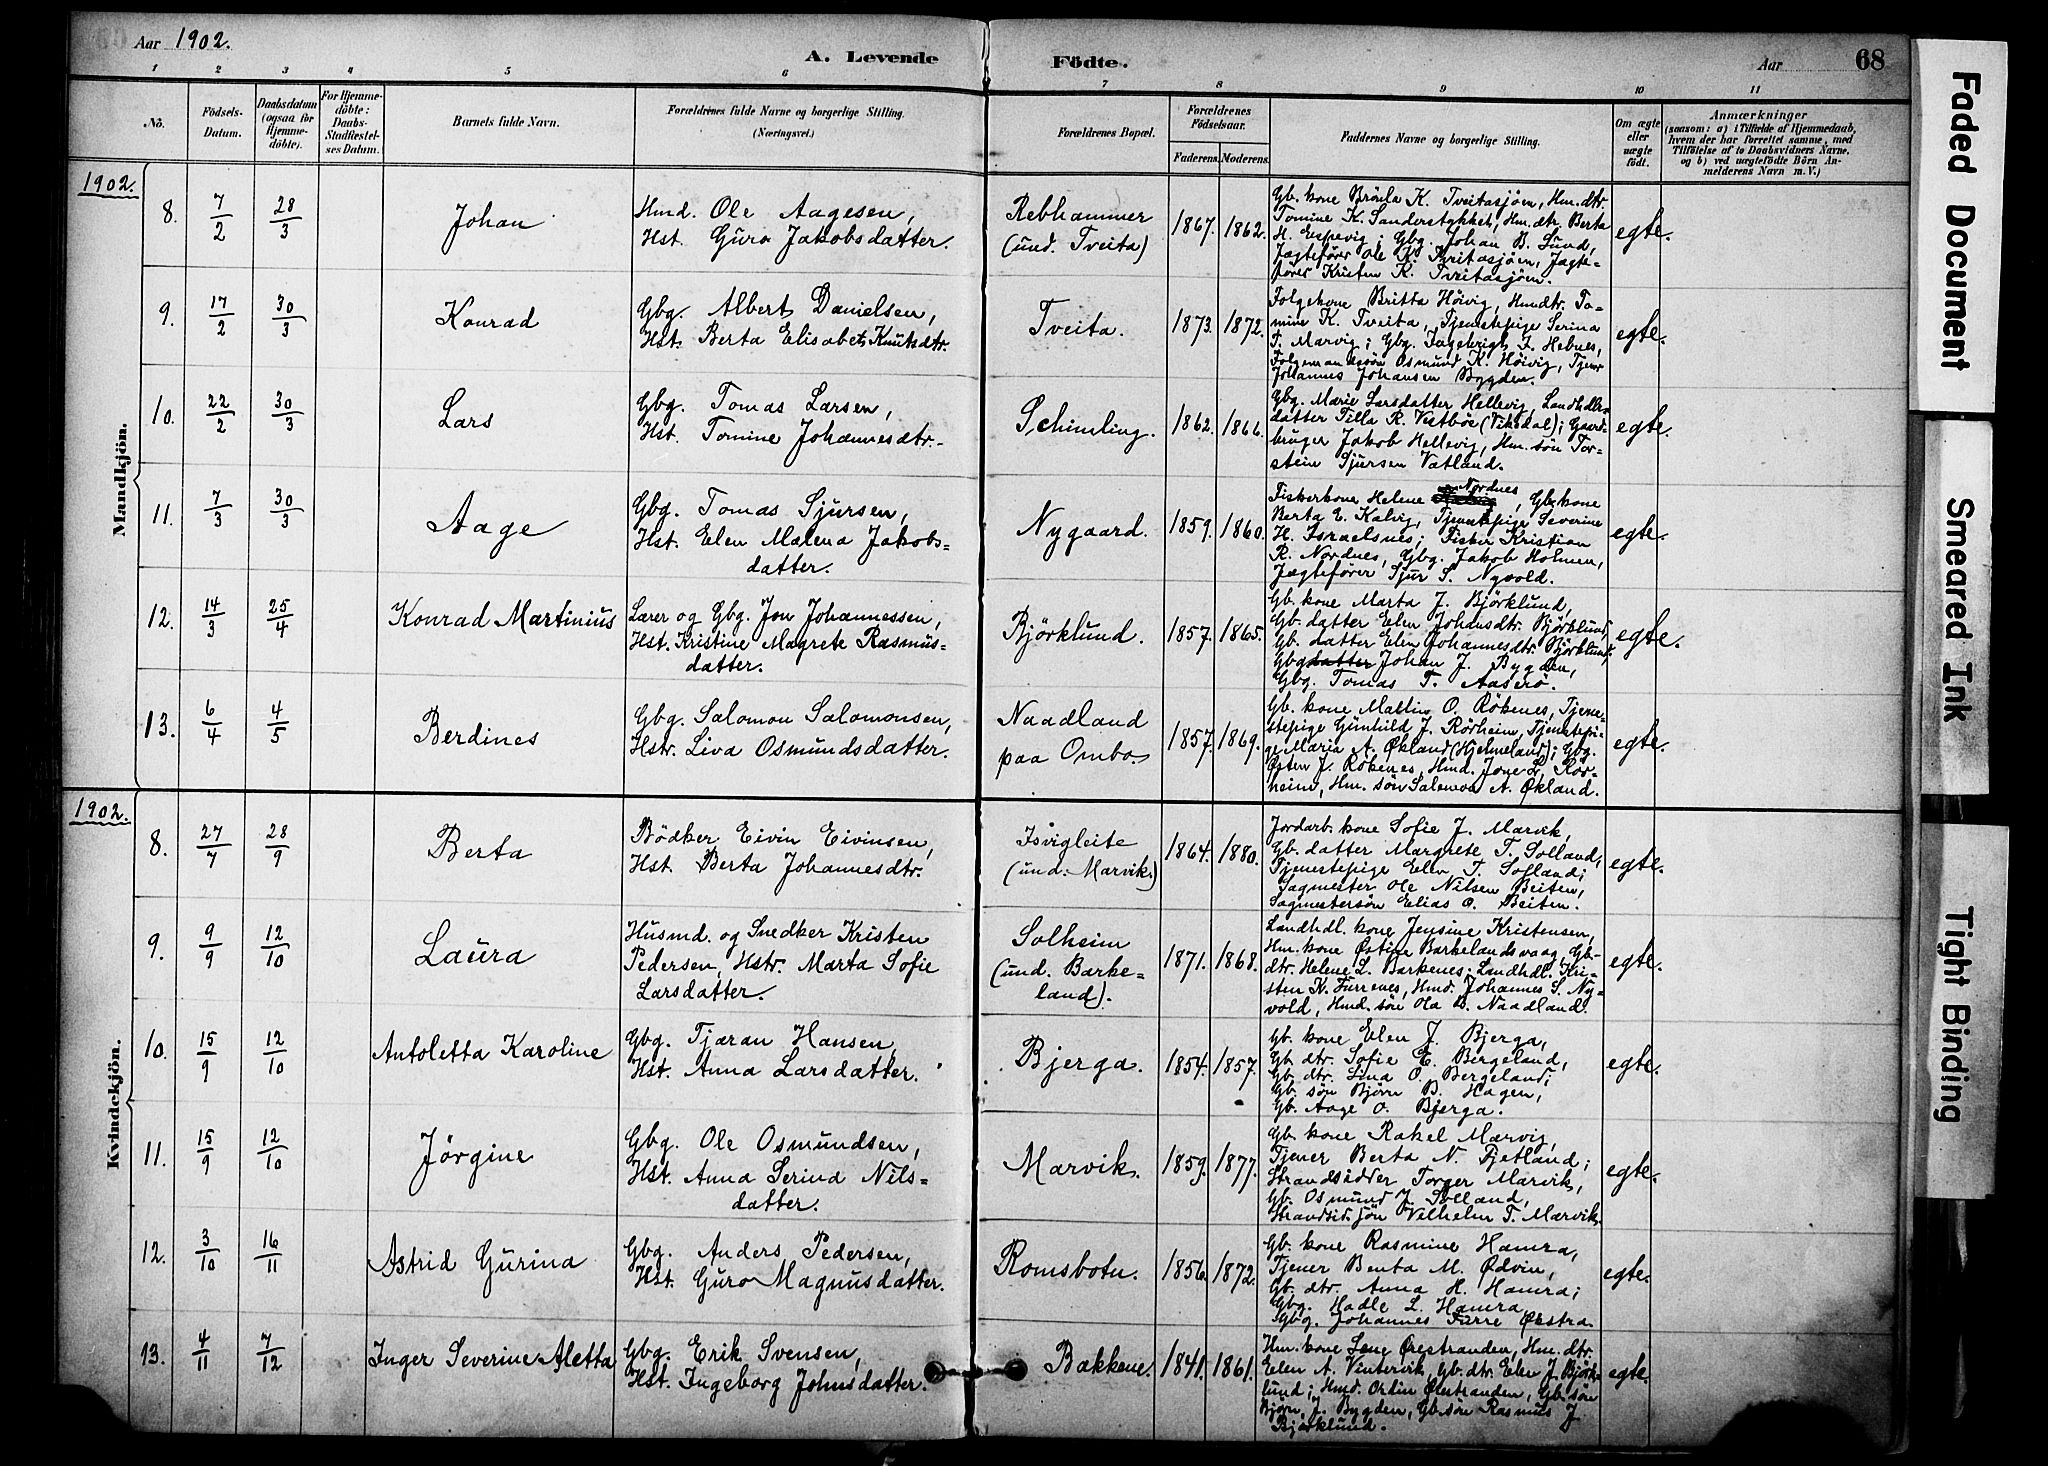 Aar 1902.
A. Levende Födte.
Aar
68
1 2 3 4 5 6 7 8 9 10 11
Nô.
Födsels-Datum.
Daabsdatum (ogsaa för Hjemme-döbte).
For Hjemme-döbte: Daabs-Stadfæstel-ses Datum.
Barnets fulde Navn.
Forældrenes fulde Navne og borgerlige Stilling. (Næringsvei.)
Forældrenes Bopæl.
Forældrenes Födselsaar.
Faderens. Moderens.
Faddernes Navne og borgerlige Stilling.
Om ægte eller uægte födt.
Anmærkninger
(saasom: a) i Tilfælde af Hjemmedaab,
hvem der har forrettet samme, med
Tilföielse af to Daabsvidners Navne,
og b) ved uægtefödte Börn An-
melderens Navn m. V.)
Mandkjön.
1902.
8. 7/2 28/3 Johan
Hmd. Ole Aagesen,
Hst. Guro Jakobsdatter.
Rebhammer
(und. Tveita)
1867. 1862.
Gb. kone Bröula K. Tveitasjöen, Hm. dtr.
Tomine K. Sanderstykket, Hm. dtr. Berta
H. Espevig, Gbg. Johan B. Lund,
Jægteförer Ole K. Tveitasjöen, Jægte-
förer Kristen K. Tveitasjöen.
egte.
9. 17/2 30/3 Konrad
Gbg. Albert Danielsen,
Hst. Berta Elisabet Knutsdtr.
Tveita.
1873. 1872.
Folgekone Britta Höivig, Hmdtr. To-
mine K. Tveita, Tjenestepige Serina
T. Marvig; Gbg. Ingebrigt I. Hebnes,
Folgemandssön Osmund K. Höivig, Tjener
Johannes Johansen Bygden.
egte.
10. 22/2 30/3 Lars
Gbg. Tomas Larsen,
Hst. Tomine Johannesdtr.
Schimling.
1862. 1866.
Gbg. Marie Larsdatter Hellevig, Landhdlrs
datter Tilla R. Vestböe (Vikedal); Gaard-
bruger Jakob Hellevig, Hm. sön Tor-
stein Sjursen Vatland.
egte.
11. 7/3 30/3 Aage
Gbg. Tomas Sjursen,
Hst. Elen Malena Jakobs=
datter.
Nygaard.
1859. 1860.
Fiskerkone Helene Nordnes, Gb. kone
Berta E. Kalvig, Tjenestepige Severine
H. Israelsnes; Fisker Kristian
R. Nordnes, Gbg. Jakob Holmen,
Jægtefører Sjur S. Nyvold.
egte.
12. 14/3 25/4 Konrad Martinius
Lærer og Gbg. Jon Johannessen,
Hst. Kristine Magrete Rasmus=
datter.
Björklund.
1857. 1865.
Gb. kone Marta J. Björklund,
Gb. datter Elen Johnsdtr. Björklund,
Gb. datter Elen Johannesdtr. Björklund,
Gbg datter Johan J. Bygden,
Gbg. Tomas T. Aaserö.
egte.
13. 6/4 4/5 Berdines
Gbg. Salomon Salomonsen,
Hstr. Liva Osmundsdatter.
Naadland
paa Ombo.
1857. 1869.
Gb. kone Mattis O. Rökenes, Tjene-
stepige Gunhild J. Rörheim, Tjenestepi-
ge Maria A. Økland (Hjelmeland); Gbg.
Østen J. Rökenes, Hmd. Jone L. Rör-
heim, Hm. sön Salomon A. Økland.
egte.
Kvindekjön.
1902.
8. 27/7 28/9 Berta
Bödker Eivin Eivinsen,
Hst. Berta Johannesdtr.
Isvigleite
(und. Marvik.)
1864. 1880.
Jordarb. kone Sofie J. Marvik,
Gb. datter Margrete T. Solland,
Tjenestepige Elen T. Solland;
Sagmester Ole Nilsen Beiten,
Sagmestersön Elias O. Beiten.
egte.
9. 9/9 12/10 Laura
Husmd. og Snedker Kristen
Pedersen, Hstr. Marta Sofie
Larsdatter.
Solheim
(und. Barke=
land).
1871. 1868.
Landhdl. kone Jensine Kristensen,
Hm. kone Østine Barkelandsvaag, Gb-
dtr. Helene L. Barkenes; Landhdl. Kri-
sten K. Furrenes, Hmd. Johannes S. Ny-
vold, Hmd. sön Ola B. Naadland.
egte.
10. 15/9 12/10 Antoletta Karoline
Gbg. Tjæran Hansen,
Hst. Anna Larsdatter.
Bjerga.
1854. 1857.
Gb. kone Elen J. Bjerga,
Gb. dtr. Sofie E. Bergeland,
Gb. dtr. Lina O. Bergeland;
Gb. sön Björn B. Hagen,
Gb. Aage O. Bjerga.
egte.
11. 15/9 12/10 Jörgine
Gbg. Ole Osmundsen,
Hst. Anna Serina Nils=
datter.
Marvik.
1859. 1877.
Gb. kone Rakel Marvig,
Tjener Berta N. Fjetland;
Strandsidder Torger Marvik,
Gb. Osmund J. Solland,
Strandsid. sön Vilhelm T. Marvik.
egte.
12. 3/10 16/11 Astrid Gurina
Gbg. Anders Pedersen,
Hst. Guro Magnusdatter.
Romsbotn.
1856. 1872.
Gb. kone Rasmine Hamra,
Tjener Benta M. Ødvin,
Gb. dtr. Anna H. Hamra;
Gbg. Hadle L. Hamra,
Gbg. Johannes Furre Økstra.
egte.
13. 4/11 7/12 Inger Severine Aletta
Gbg. Erik Svensen,
Hst. Ingeborg Johnsdatter.
Bakkene.
1841. 1861.
Hm. kone Lene Ørestranden, Hm. dtr.
Elen A. Vintervik, Gb. dtr. Elen J. Björk-
lund; Hmd. Orlin Ølestranden, Gb. sön
Björn J. Bygden, Gb. sön Rasmus J.
Björklund.
egte.
Faded Document
Smeared Ink
Tight Binding